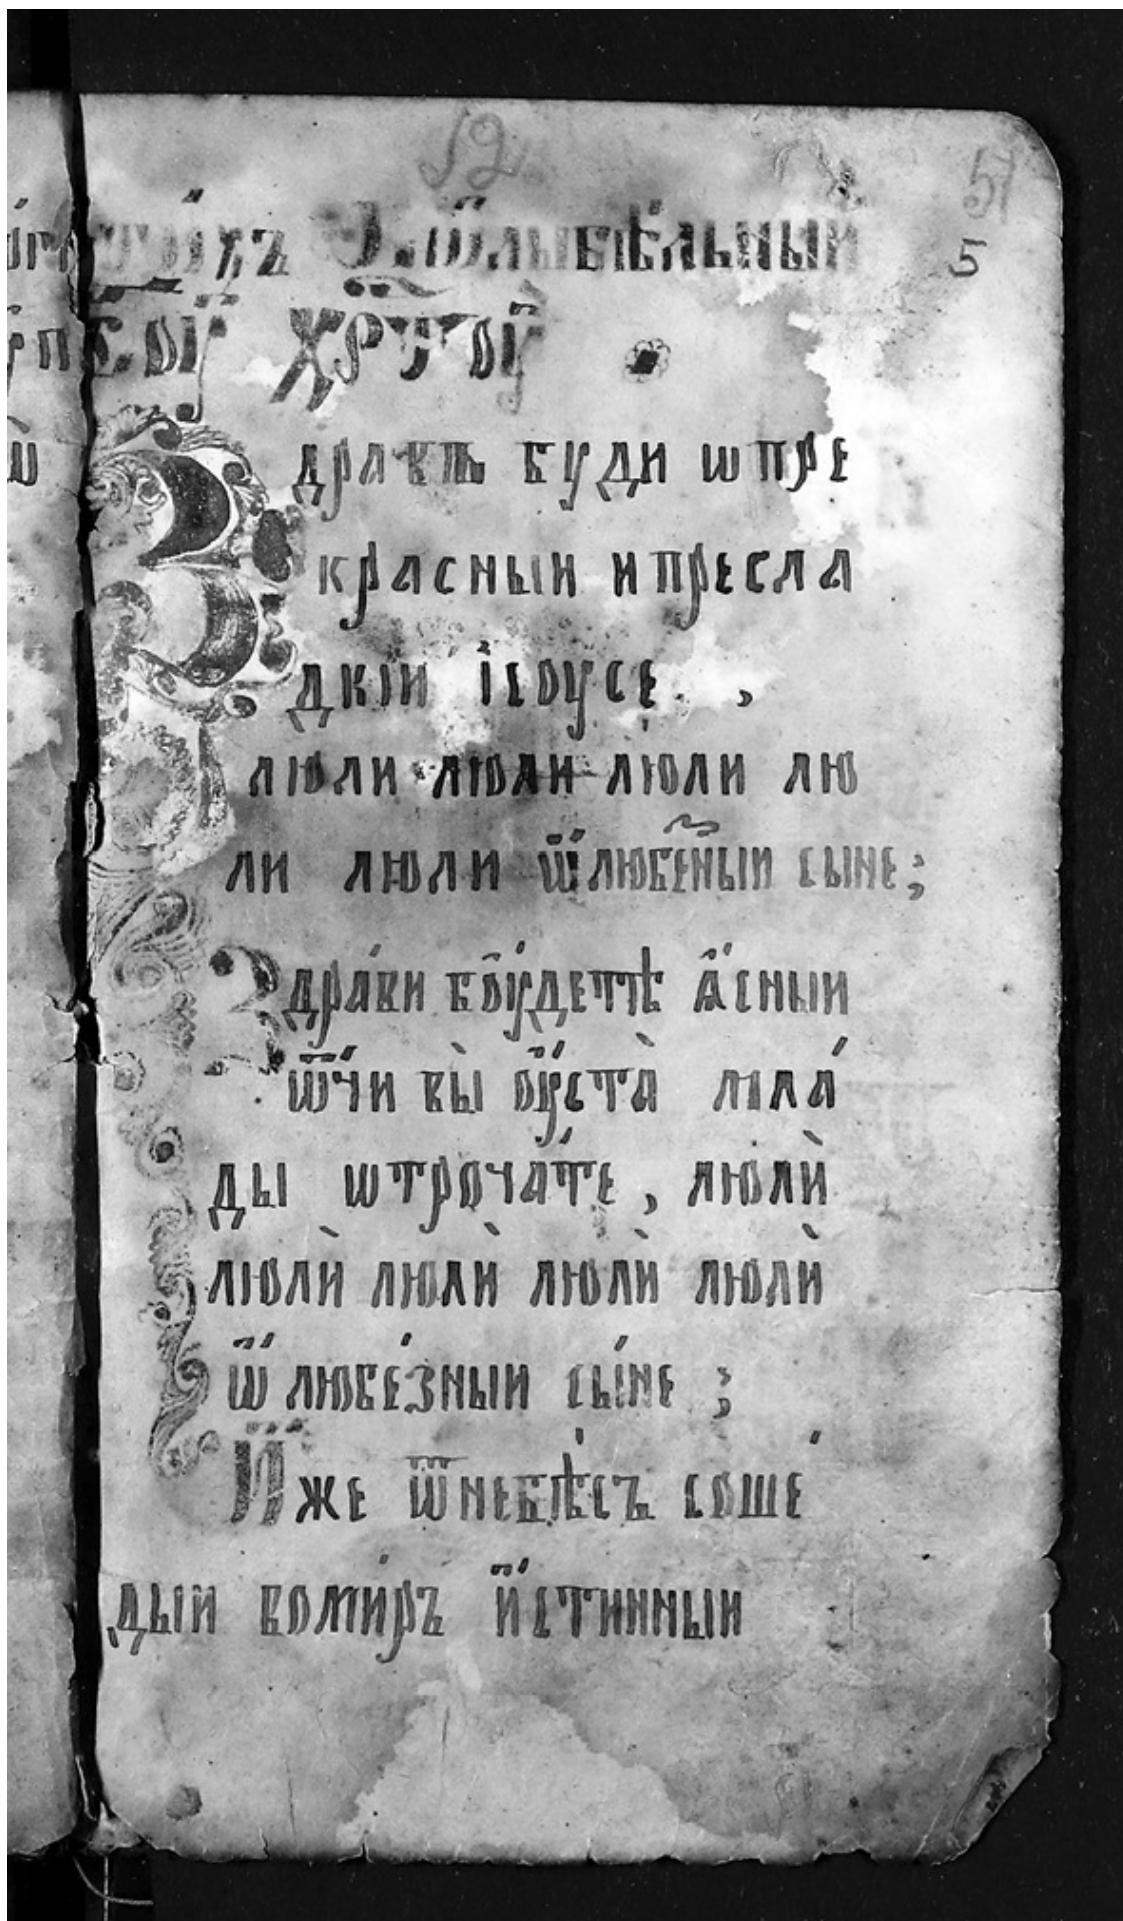 52
51
5
хрⷭ҇тоу́
Здравъ буди ѡпре
красныи ипресла
дкїи і̇соусе ,
люли люли люли лю
ли люли ѿлюбе́ⷥныи сыне;
Здра́ви бо́удетѣ ꙗ҆́сныи
ѿ́чи вы̀ оу҆ста̀ мла́
ды ѡтроча́те , люлѝ
люлѝ люлѝ люлѝ люлѝ
ѿ любе́зныи сы́не ;
И҆́же ѿнебѣ́съ соше́
дыи воми́ръ и҆́стинныи